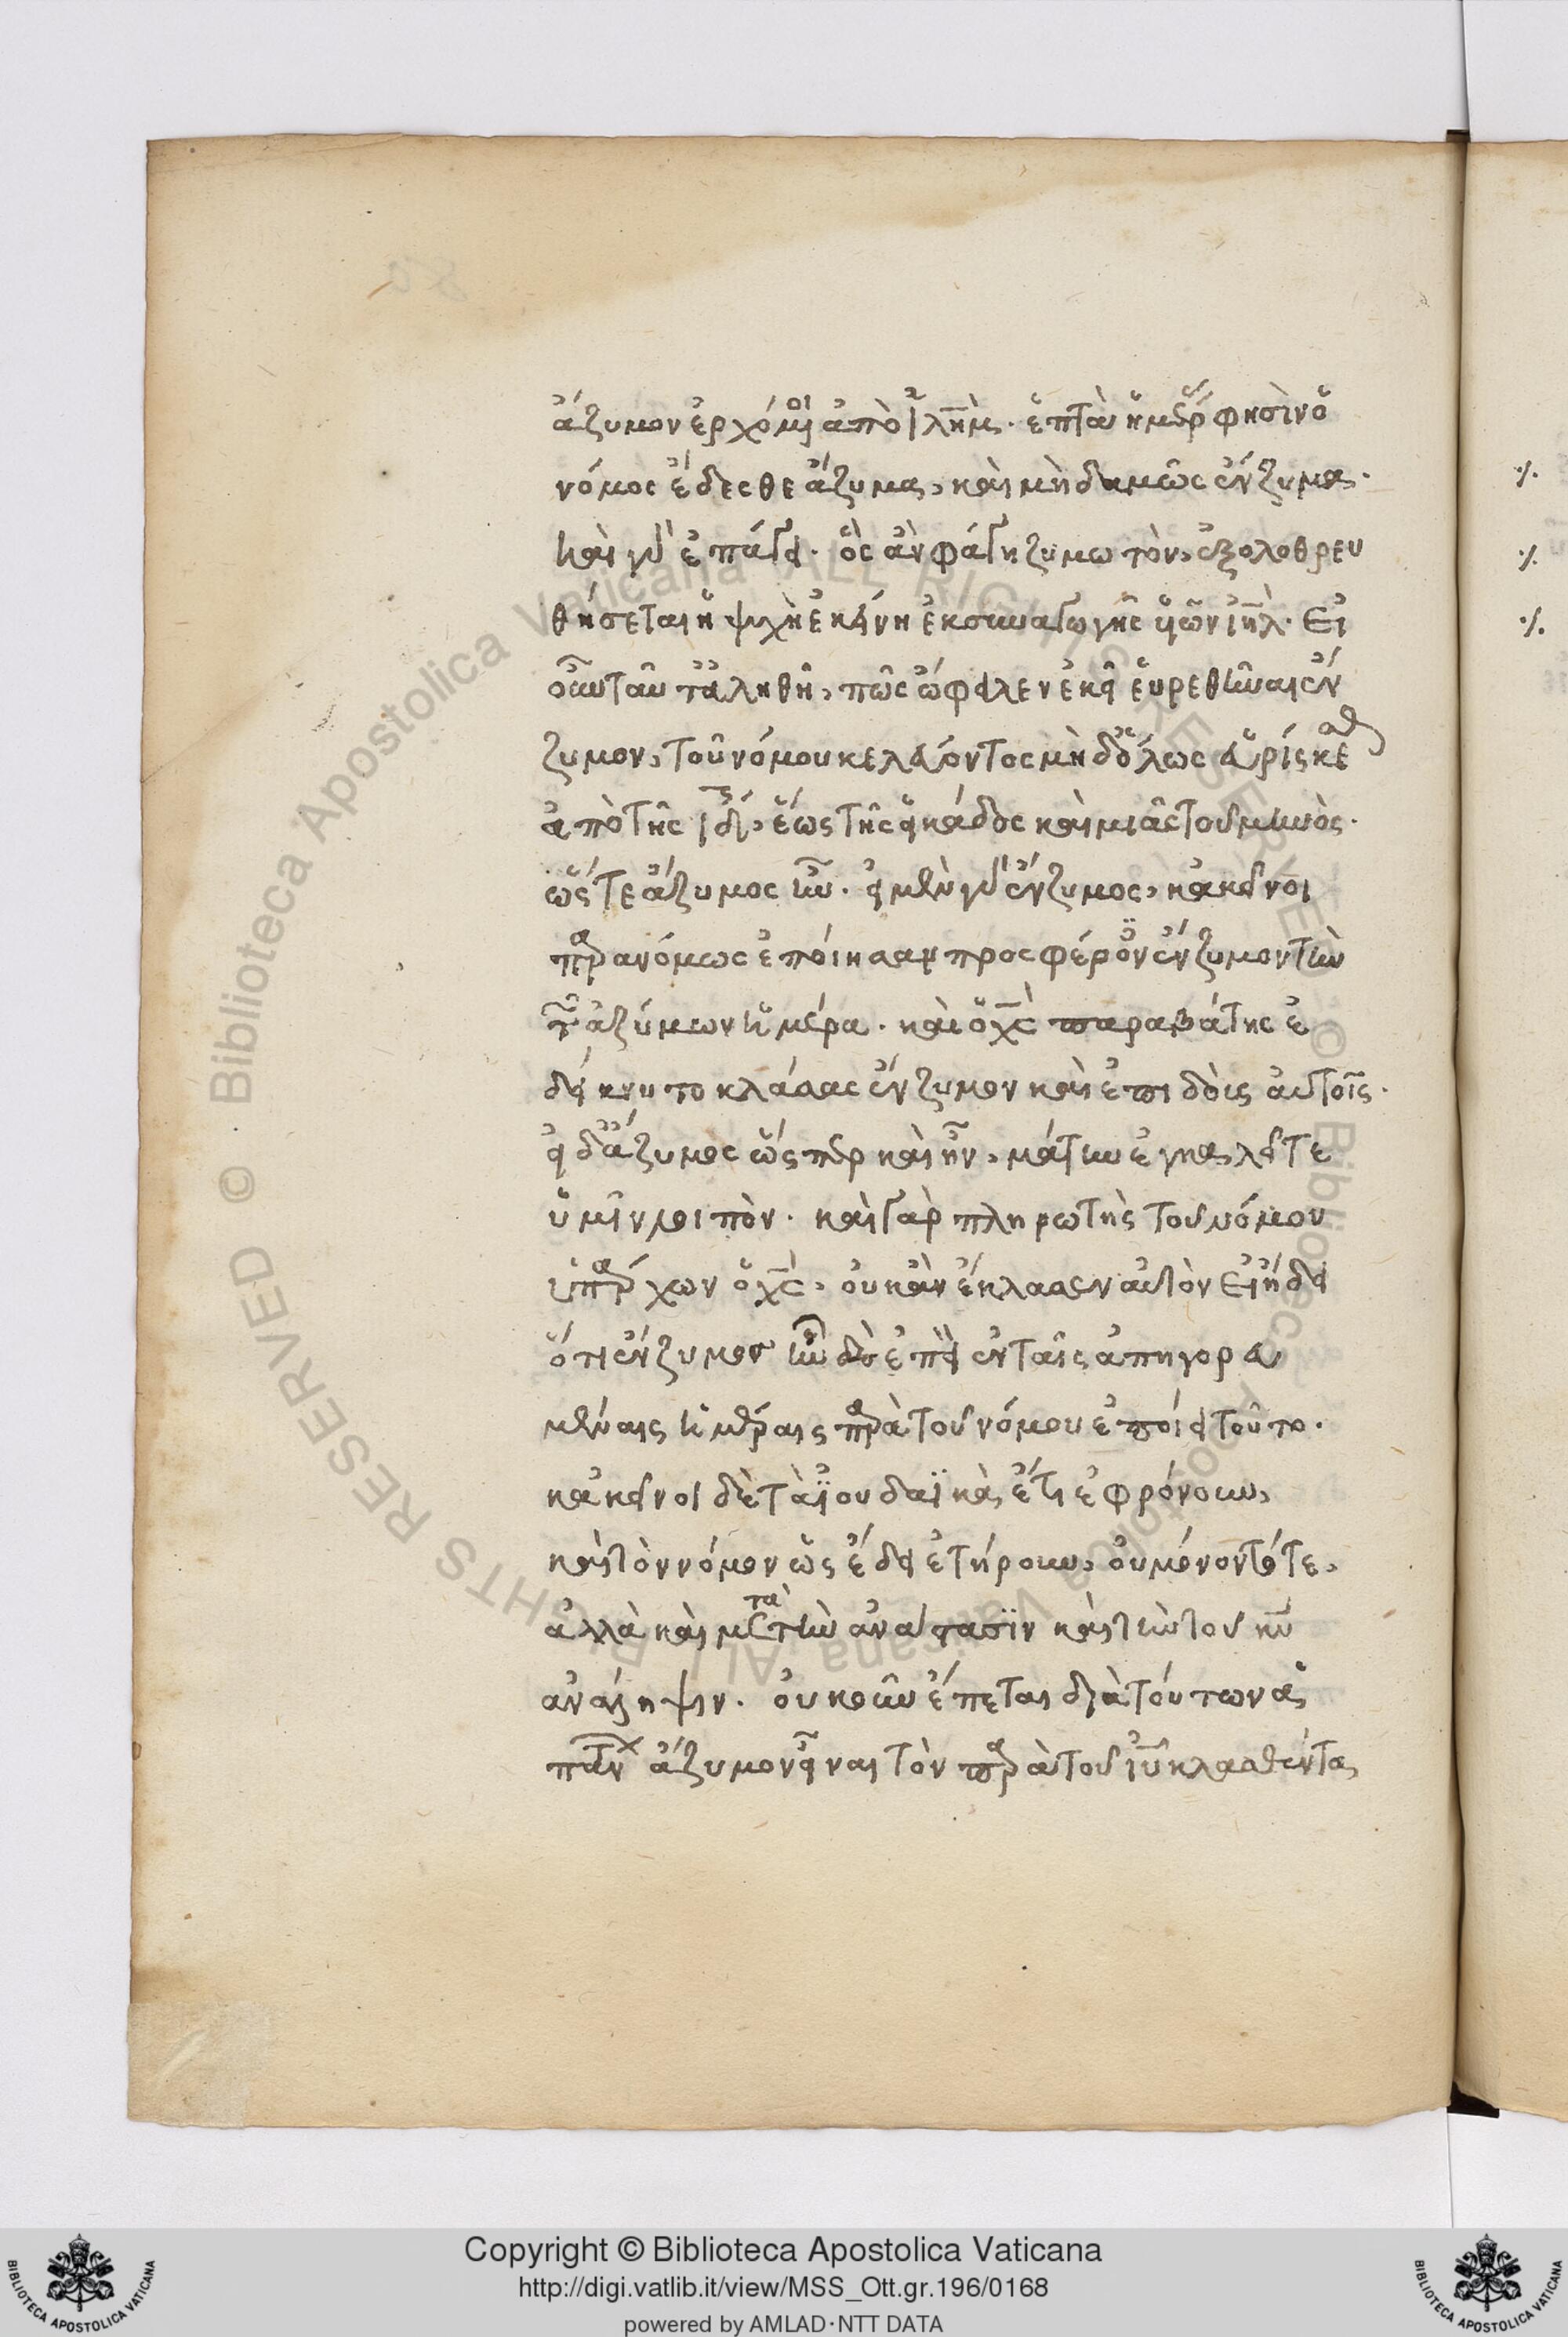 ἄζυμον ἐρχόμοι ἀπὸ ἱλῆμ. ἑπτὰ ἡμέρ φησὶν ὁ
νόμος ἔδεσθε ἄζυμα, καὶ μηδαμῶς ἔνζυμα.
καὶ ἐπάγει. ὃς ἂν φάγη ζυμωτὸν, ἐξολοθρευ
θήσεται ἡ ψυχὴ ἐκείνη ἐκ συναγωγῆς υἱῶν ιῆλ. Εἰ
οὖν ταῦτ᾽ ἀληθῆ, πῶς ὤφειλεν ἐκεῖ εὑρεθῆναι ἔν
ζυμον, τοῦ νόμου κελεύοντος μὴ δ᾽ ὅλως εὑρίσκεσθαι
ἀπὸ τῆς ιδ, ἕως τῆς εἰκάδος καὶ μιᾶς τοῦ μηνὸς.
ὥστε ἄζυμος ἦν. εἰ μὲν γὰρ ἔνζυμος, κἀκεῖνοι
παρανόμως ἐποίησαν προσφέρον ἔνζυμον τὴν
τῶν ἀζύμων ἡμέρα. καὶ ὁ χς παραβάτης ἐ
δείκνυτο κλάσας ἔνζυμον καὶ ἐπιδοὺς αὐτοῖς.
εἰ δ᾽ ἄζυμος ὥσπερ καὶ ἦν, μάτην ἐγκαλεῖτε
ὑμῖν λοιπὸν. καὶ γὰρ πληρωτὴς τοῦ νόμου
ὑπάρχων ὁ χς, οὐκ ἂν ἔκλασεν αὐτὸν εἰ ἤδει
ὅτι ἔνζυμον ἦν ἐπεὶ ἐν ταῖς ἀπηγορευ
μέναις ἡμέραις παρὰ τοῦ νόμου ἐποίει τοῦτο.
κἀκεῖνοι δὲ τὰ ἰουδαϊκὰ ἔτι ἐφρόνουν,
καὶ τὸν νόμον ὡς ἔδει ἐτήρουν, οὐ μόνον τότε,
ἀλλὰ καὶ μετὰ τὴν ἀνάστασιν καὶ τὴν τοῦ κυ
ἀνάληψιν. οὐκοῦν ἕπεται διὰ τούτων ἁ
πάντων ἄζυμον εἶναι τὸν παρὰ τοῦ ιυ κλασθέντα
Copyright © Biblioteca Apostolica Vaticana
http://digi.vatlib.it/view/MSS_Ott.gr.196/0168
powered by AMLAD·NTT DATA